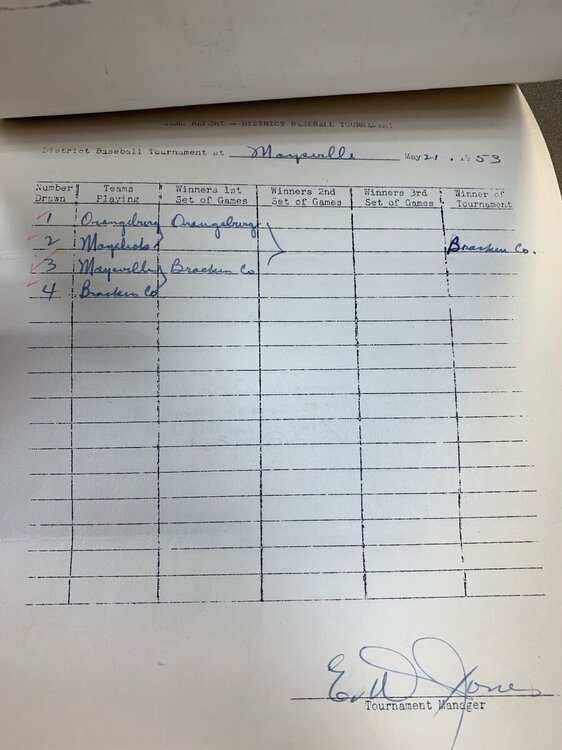 GAME REPORT - DISTRICT BASEBALL TOURNAMENT
District Baseball Tournament at Maysville May 21, 1953
Number Drawn Teams Playing Winners 1st Set of Games Winners 2nd Set of Games Winners 3rd Set of Games Winner of Tournament
1 Orangeburg Orangeburg
2 Mayslick Bracken Co.
3 Maysville Bracken Co
4 Bracken Co
E. W. Jones
Tournament Manager